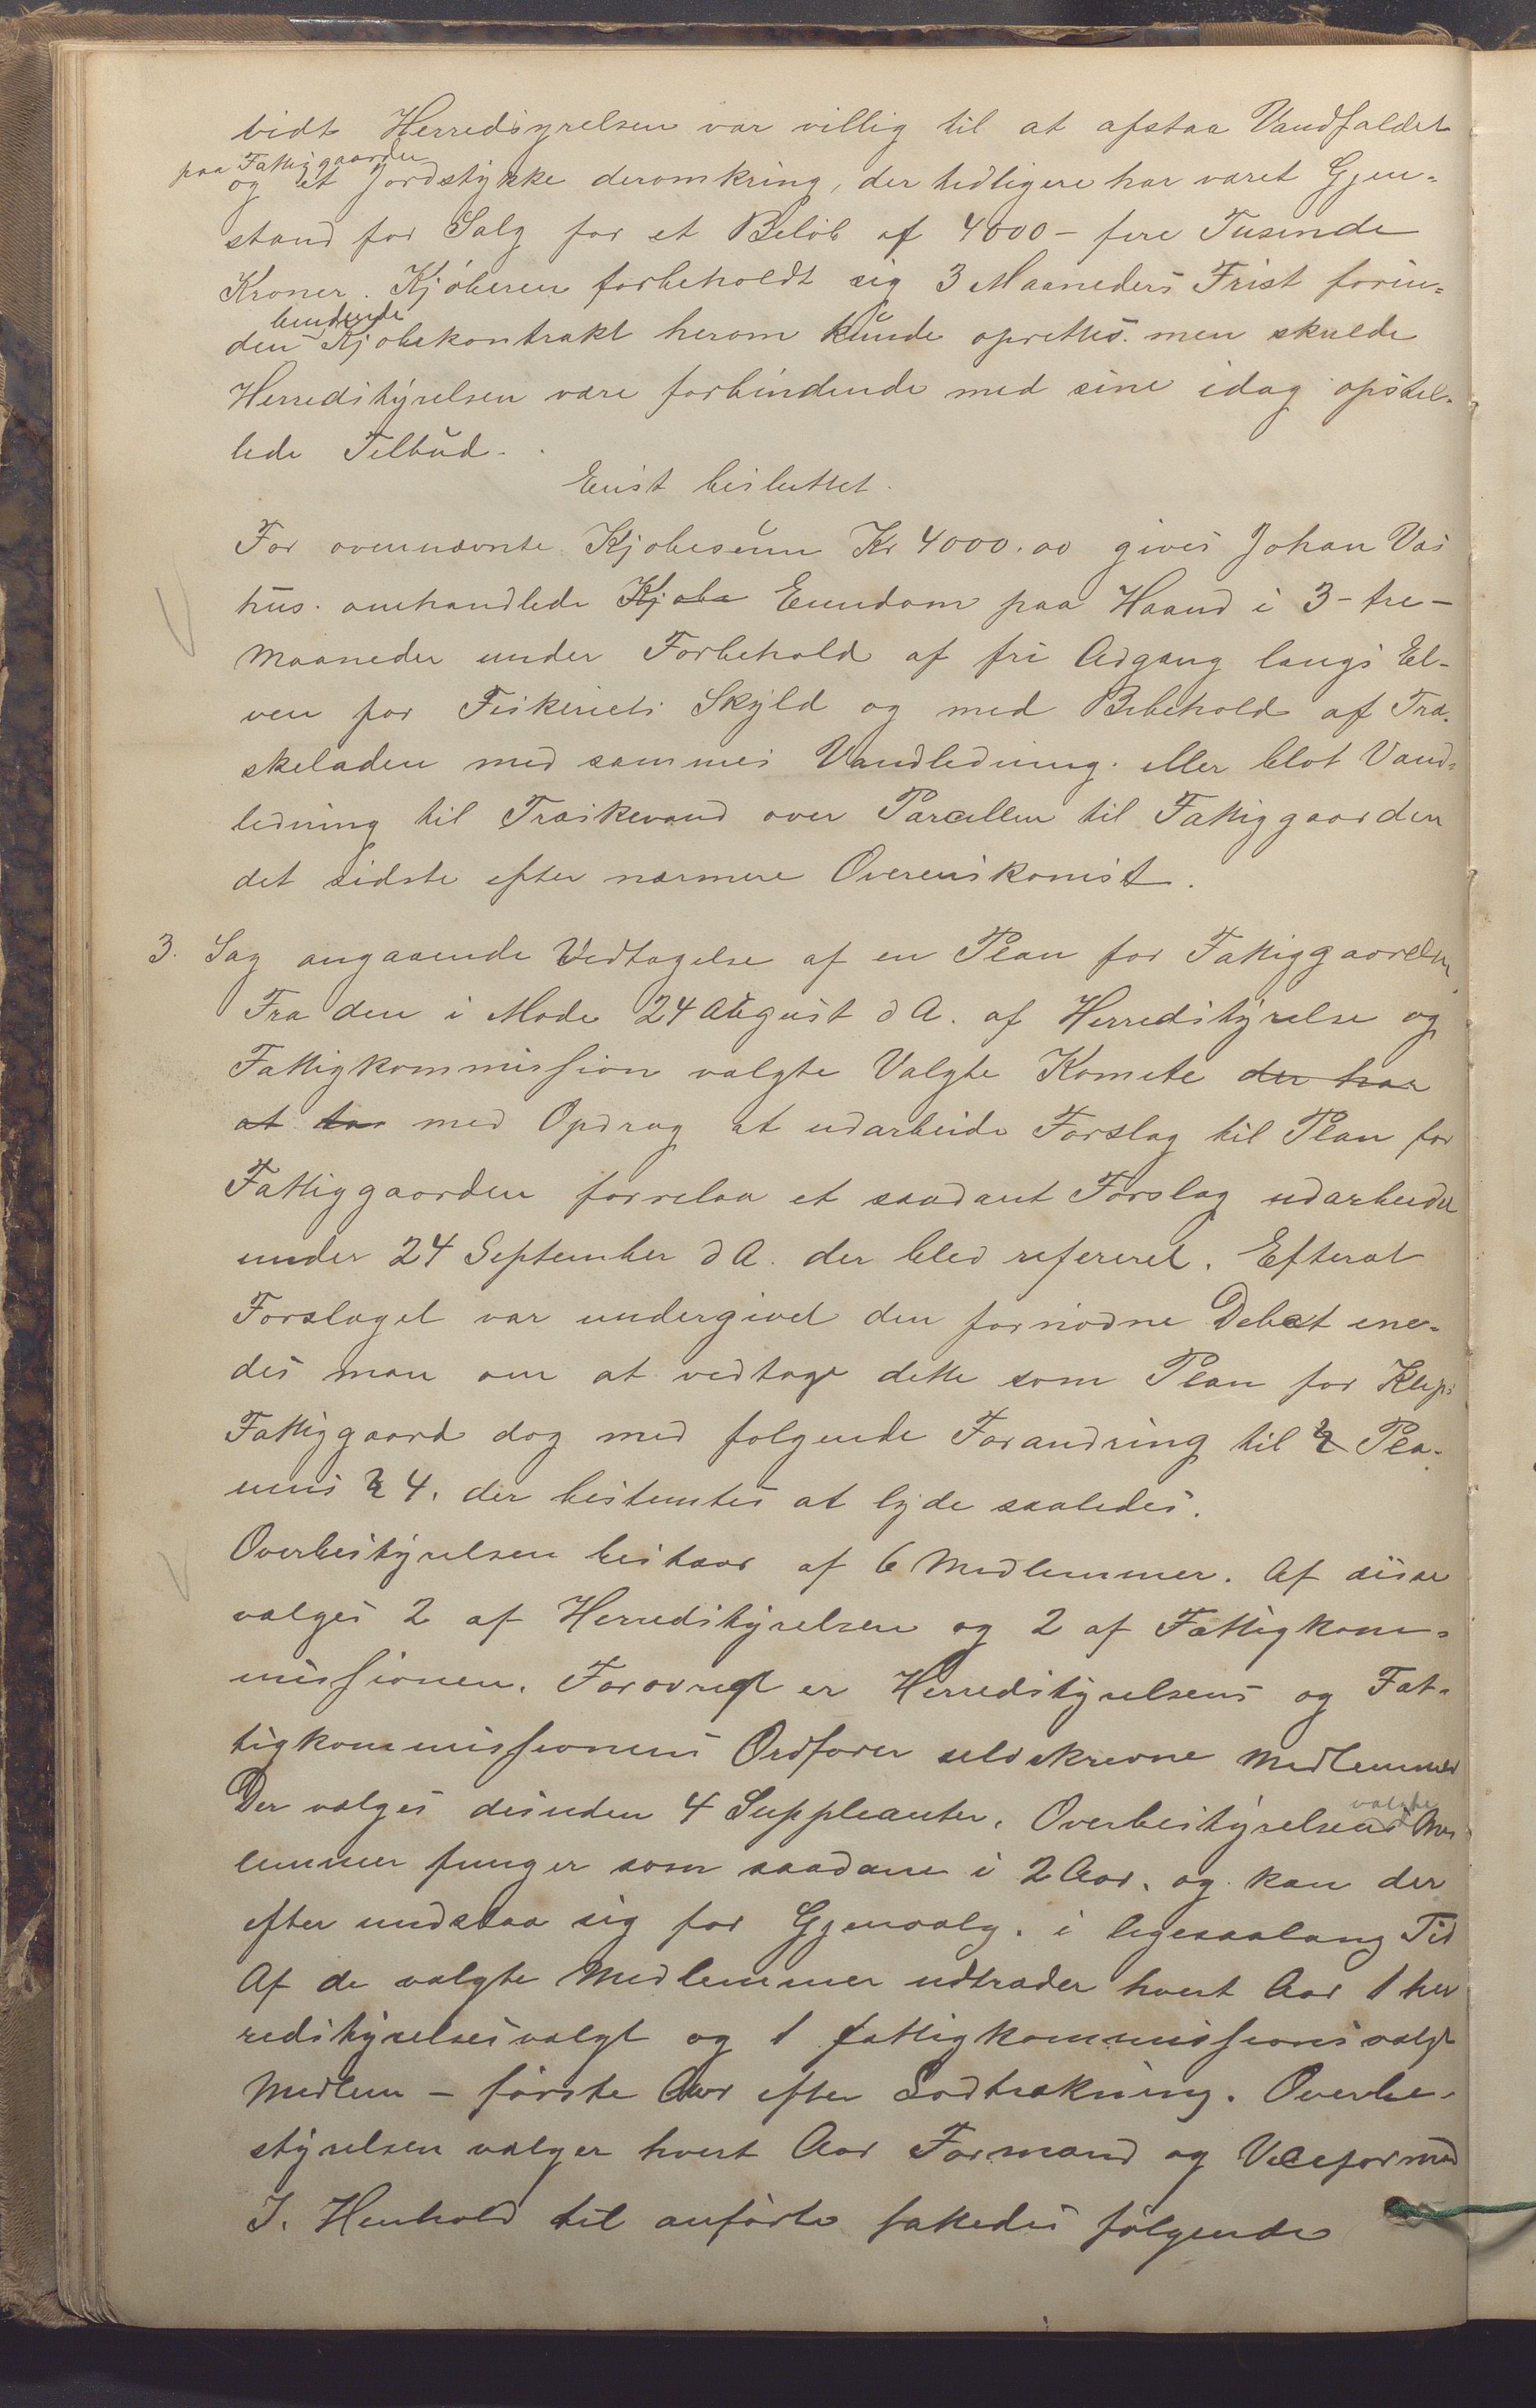 vidt Herredsyrelsen var villig til at afstaa Vandfaldet
paa Fattiggaarden
og et Jordstykke deromkring, der tidligere har været Gjen-
stand for Salg for et Beløb af 4000 - fire Tusinde
Kroner. Kjøberen forbeholdt sig 3 Maaneders Frist forin-
bindende
den Kjøbekontrakt herom kunde oprettes. men skulde
Herredstyrelsen være forbindende med sine idag opstil-
lede Tilbud.
Enst besluttet.
For ovennævnte Kjøbesum Kr 4000.00 gives Johan Vas
hus. omhandlede Kjøbe Eiendom paa Haand i 3 - tre -
Maaneder under Forbehold af fri Adgang langs El-
ven for Fiskeriets Skyld og med Bibehold af Træ-
skeladen med sammes Vandledning. eller blot Vand-
ledning til Træskevand over Parcellen til Fattiggaarden
det sidste efter nærmere Overenskomst.
3. Sag angaaende Vedtagelse af en Plan for Fattiggaarden
Fra den i Møde 24 August d A. af Herredstyrelse og
Fattigkommission valgte Valgte Komite der har
at med Opdrag at udarbeide Forslag til Plan for
Fattiggaarden forelaa et saadant Forslag udarbeidet
under 24 September d A. der blev refereret. Efterat
Forslaget var undergivet den fornødne Debat ene-
des man om at vedtage dette som Plan for Kleps
Fattiggaard dog med følgende Forandring til § Pla-
nens § 4. der bestemtes at lyde saaledes.
Overbestyrelsen bestaar af 6 Medlemmer. Af disse
vælges 2 af Herredstyrelsen og 2 af Fattigkom-
missionen. Forøvrigt er Herredstyrelsens og Fat-
tigkommissionens Ordfører selvskrevne Medlemmer
Der vælges desuden 4 Suppleanter. Overbestyrelsens valgte Med
lemmer funger som saadane i 2 Aar. og kan der
efter undslaa sig for Gjenvalg. i ligesaalang Tid
Af de valgte Medlemmer udtræder hvert Aar 1 her
redstyrelsesvalgt og 1 fattigkommissionsvalgt
Medlem - første Aar efter Lodtrækning. Overbe-
styrelsen vælger hvert Aar Formand og Viceformand
I. Henhold til anførte fattedes følgende